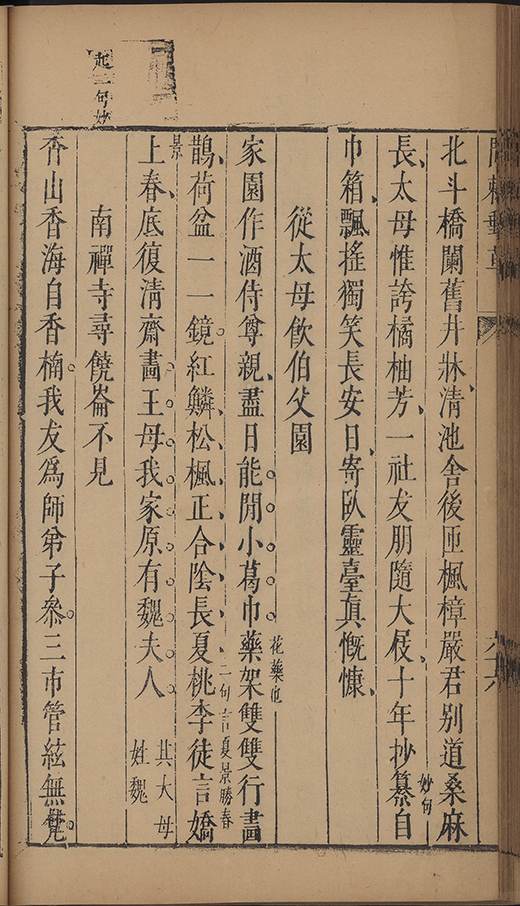 北斗橋闌舊井牀清池舍後匝楓樟嚴君別道桑麻
妙句
長太母惟誇橘柚芳一社友朋隨大屐十年抄纂自
巾箱飄搖獨笑長安日寄臥靈臺真慨慷
從太母飲伯父園
家園作酒侍尊親盡日能閒小葛巾藥架雙雙行畫
花藥也
鵲荷盆一一鏡紅鱗松楓正合陰長夏桃李徒言嬌
二句言夏景勝春
景
上春底復清齋畫王母我家原有魏夫人
其大母
姓魏
南禪寺尋饒崙不見
起二句妙
香山香海自香楠我友爲師弟子叅三市管絃無